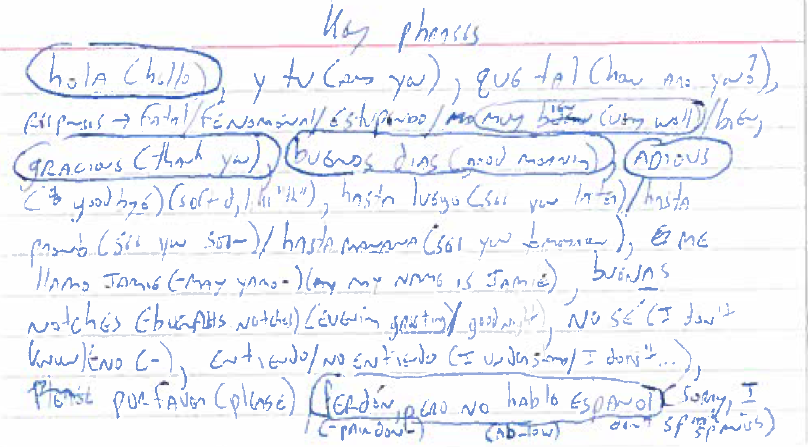 Key phrases
hola (hello), y tu (and you), que tal (how are you?),
responses → fatal/fenomenal/estupendo/ muy bien (very well)/bien,
gracious (thank you), buenos dias (good morning), adious
(goodbye) (soft d, like "th"), hasta luego (see you later)/hasta
pronto (see you soon)/hasta manana (see you tomorrow), me
llamo Jamie (-may yamo-) (my name is Jamie), buenas
notches (buenas notches) (evening greeting/goodnight), No se (I don't
know), entiendo/no entiendo (I understand/I don't...),
please porfaver (please) (perdón, pero no hablo español (sorry, I
(-pairdon-) (ab-low) don't spanius)